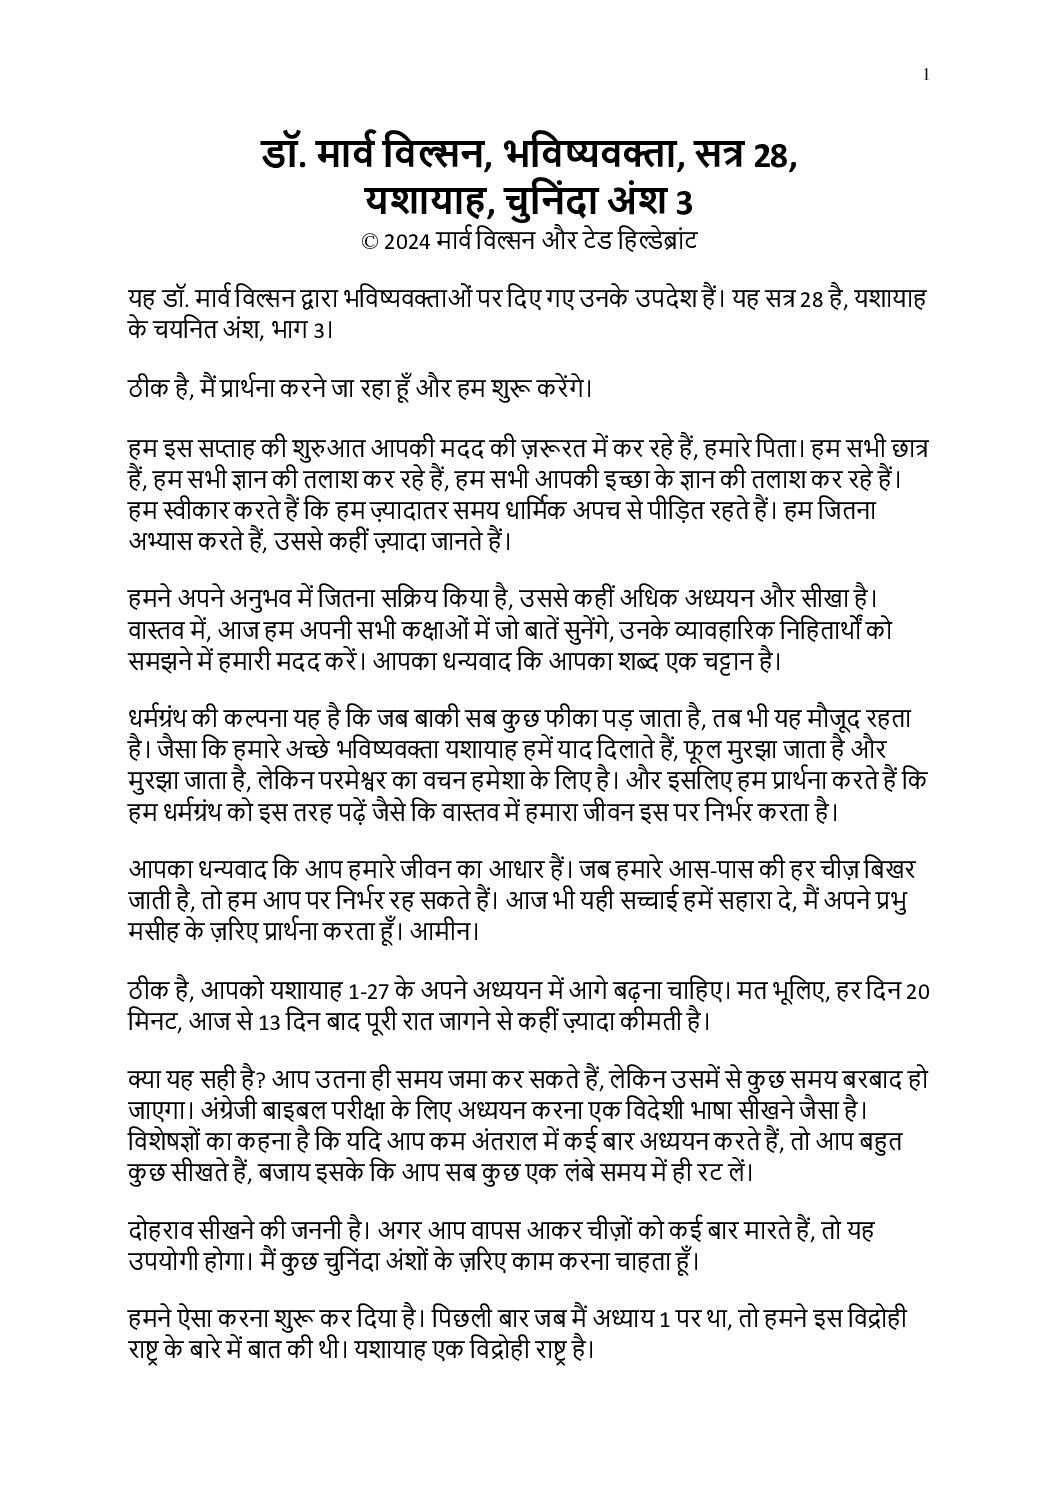 1
डॉ. मार्व विल्सन, भविष्यवक्ता, सत्र 28,
यशायाह, चुनिंदा अंश 3
© 2024 मार्व विल्सन और टेड हिल्डेब्रांट
यह डॉ. मार्व विल्सन द्वारा भविष्यवक्ताओं पर दिए गए उनके उपदेश हैं। यह सत्र 28 है, यशायाह
के चयनित अंश, भाग 3।
ठीक है, मैं प्रार्थना करने जा रहा हूँ और हम शुरू करेंगे।
हम इस सप्ताह की शुरुआत आपकी मदद की ज़रूरत में कर रहे हैं, हमारे पिता। हम सभी छात्र
हैं, हम सभी ज्ञान की तलाश कर रहे हैं, हम सभी आपकी इच्छा के ज्ञान की तलाश कर रहे हैं।
हम स्वीकार करते हैं कि हम ज़्यादातर समय धार्मिक अपच से पीड़ित रहते हैं। हम जितना
अभ्यास करते हैं, उससे कहीं ज़्यादा जानते हैं।
हमने अपने अनुभव में जितना सक्रिय किया है, उससे कहीं अधिक अध्ययन और सीखा है।
वास्तव में, आज हम अपनी सभी कक्षाओं में जो बातें सुनेंगे, उनके व्यावहारिक निहितार्थों को
समझने में हमारी मदद करें। आपका धन्यवाद कि आपका शब्द एक चट्टान है।
धर्मग्रंथ की कल्पना यह है कि जब बाकी सब कुछ फीका पड़ जाता है, तब भी यह मौजूद रहता
है। जैसा कि हमारे अच्छे भविष्यवक्ता यशायाह हमें याद दिलाते हैं, फूल मुरझा जाता है और
मुरझा जाता है, लेकिन परमेश्वर का वचन हमेशा के लिए है। और इसलिए हम प्रार्थना करते हैं कि
हम धर्मग्रंथ को इस तरह पढ़ें जैसे कि वास्तव में हमारा जीवन इस पर निर्भर करता है।
आपका धन्यवाद कि आप हमारे जीवन का आधार हैं। जब हमारे आस-पास की हर चीज़ बिखर
जाती है, तो हम आप पर निर्भर रह सकते हैं। आज भी यही सच्चाई हमें सहारा दे, मैं अपने प्रभु
मसीह के ज़रिए प्रार्थना करता हूँ। आमीन।
ठीक है, आपको यशायाह 1-27 के अपने अध्ययन में आगे बढ़ना चाहिए। मत भूलिए, हर दिन 20
मिनट, आज से 13 दिन बाद पूरी रात जागने से कहीं ज़्यादा कीमती है।
क्या यह सही है? आप उतना ही समय जमा कर सकते हैं, लेकिन उसमें से कुछ समय बरबाद हो
जाएगा। अंग्रेजी बाइबल परीक्षा के लिए अध्ययन करना एक विदेशी भाषा सीखने जैसा है।
विशेषज्ञों का कहना है कि यदि आप कम अंतराल में कई बार अध्ययन करते हैं, तो आप बहुत
कुछ सीखते हैं, बजाय इसके कि आप सब कुछ एक लंबे समय में ही रट लें।
दोहराव सीखने की जननी है। अगर आप वापस आकर चीज़ों को कई बार मारते हैं, तो यह
उपयोगी होगा। मैं कुछ चुनिंदा अंशों के ज़रिए काम करना चाहता हूँ।
हमने ऐसा करना शुरू कर दिया है। पिछली बार जब मैं अध्याय 1 पर था, तो हमने इस विद्रोही
राष्ट्र के बारे में बात की थी। यशायाह एक विद्रोही राष्ट्र है।